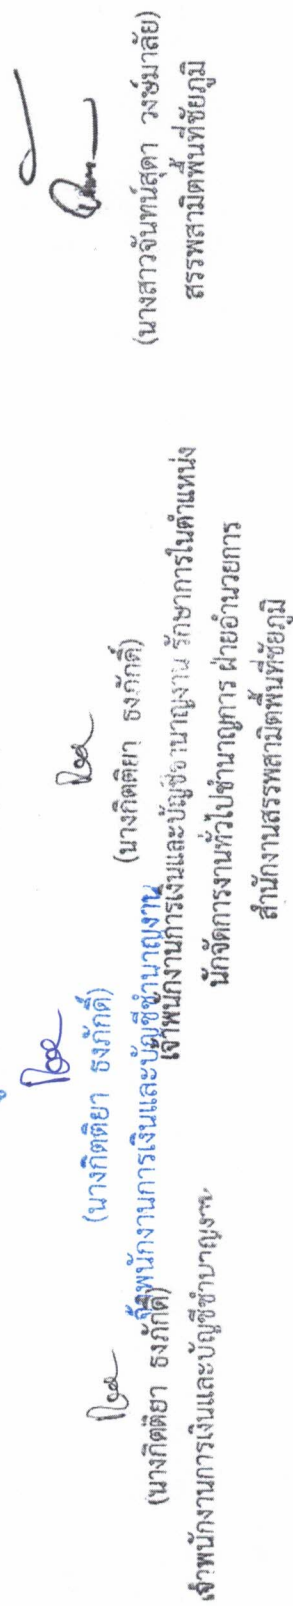 (นางกิตติยา ธงภักดิ์)
เจ้าพนักงานการเงินและบัญชีชำนาญงาน
(นางกิตติยา ธงภักดิ์)
เจ้าพนักงานการเงินและบัญชีชำนาญงาน
(นางกิตติยา ธงภักดิ์)
เจ้าพนักงานการเงินและบัญชีชำนาญงาน รักษาการในตำแหน่ง
นักจัดการงานทั่วไปชำนาญการ ฝ่ายอำนวยการ
สำนักงานสรรพสามิตพื้นที่ชัยภูมิ
(นางสาวจันทน์สุดา วงษ์มาลัย)
สรรพสามิตพื้นที่ชัยภูมิ